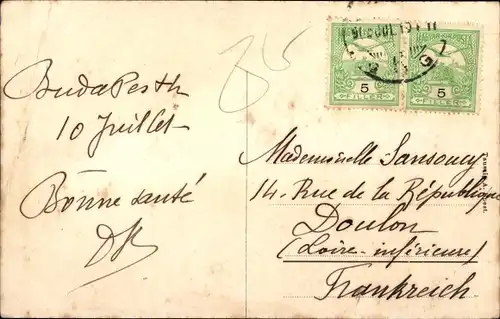 BudaPesth
10 Juillet
Bonne santé
DR
5
FILLER
5
FILLER
Mademoiselle Sansoucy
14. Rue de la République
Doulon
(Loire-inférieure)
Frankreich